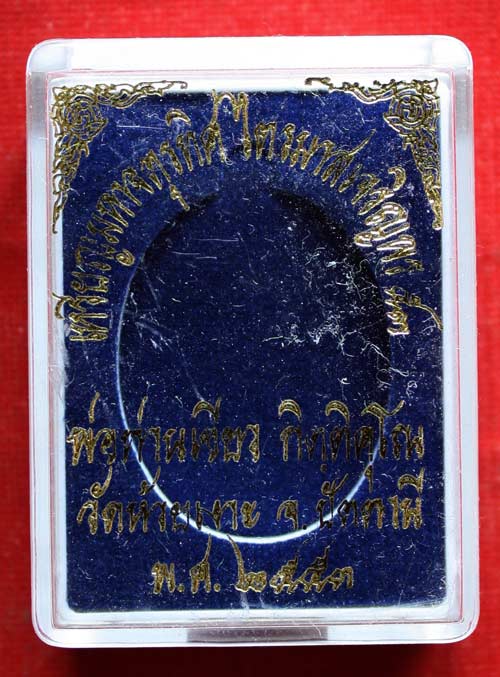 เหรียญมหาจตุรทิศ ไตรมาสเจริญพร ปี๕๓
พ่อท่านเขียว กิตฺติคุโณ
วัดห้วยเงาะ จ.ปัตตานี
พ.ศ. ๒๕๕๓